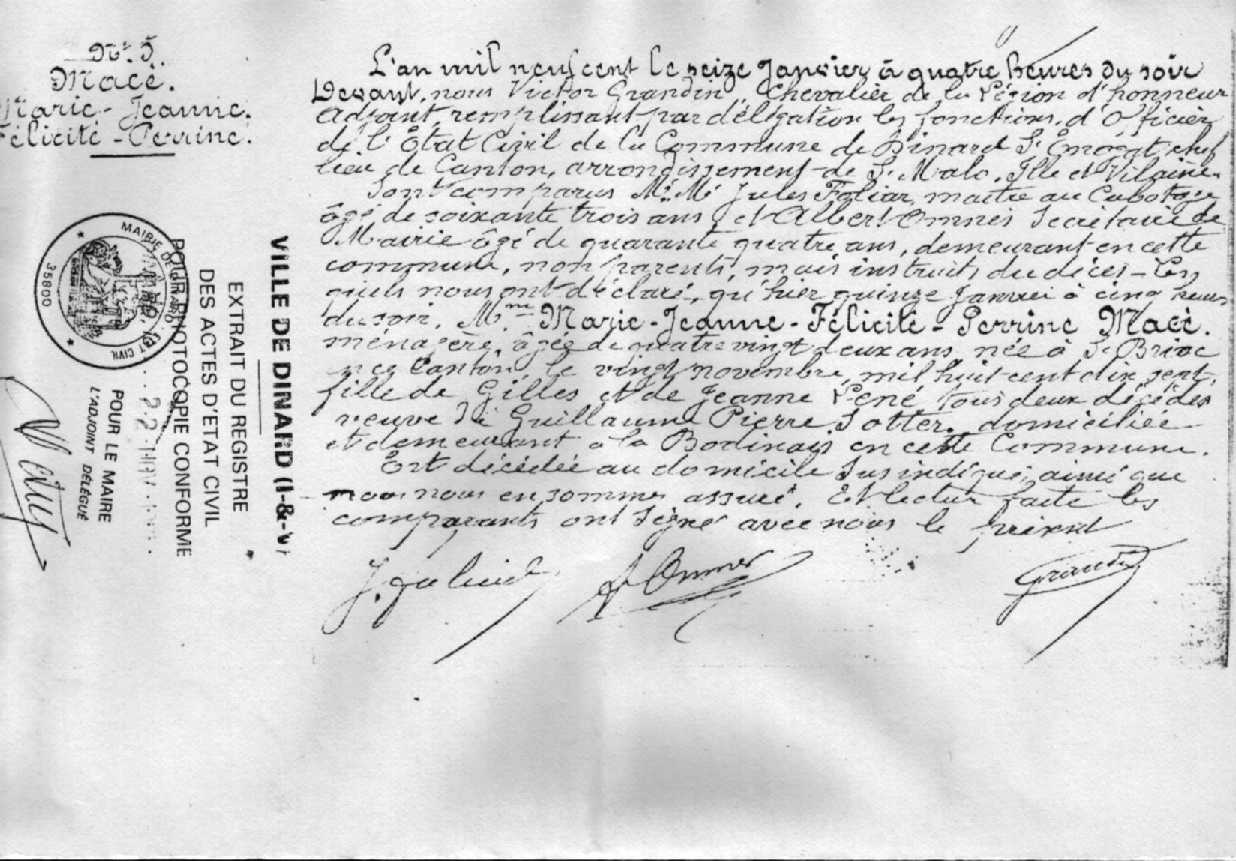 N° 5.
Macé.
Marie-Jeanne.
Félicité-Perrine.
L'an mil neuf cent le seize Janvier à quatre heures du soir
Devant, nous Victor Grandin Chevalier de la Légion d'honneur
adjoint, remplissant par délégation les fonctions, d'Officier
de l'Etat Civil de la Commune de Dinard St Enogat, chef
lieu de Canton, arrondissement de St Malo, Ille et Vilaine.
Sont comparus M.M. Jules Foliar, maitre au Cabotage
âgé de soixante trois ans, et Albert Omnès Secrétaire de
Mairie âgé de quarante quatre ans, demeurant en cette
commune, non parents, mais instruits du décès - Les
quels nous ont déclaré, qu'hier quinze Janvier à cinq heures
du soir, Mme Marie-Jeanne-Félicité-Perrine Macé.
ménagère, âgée de quatre vingt deux ans, née à St Briac
Canton, le vingt novembre, mil huit cent dix sept.
fille de Gilles et de Jeanne Vené Tous deux décédés
veuve de Guillaume Pierre, domiciliée
et demeurant à la Bodinais en cette Commune.
Est décédée au domicile sus indiqué, ainsi que
nous nous en sommes assuré. Et lecture faite les
comparants ont signé avec nous le présent
A Omnes
Grandin
VILLE DE DINARD (I-&-V)
EXTRAIT DU REGISTRE
DES ACTES D'ETAT CIVIL
POUR PHOTOCOPIE CONFORME
22 MAI
POUR LE MAIRE
L'ADJOINT DÉLÉGUÉ
MAIRIE DE DINARD
ETAT CIVIL
35800